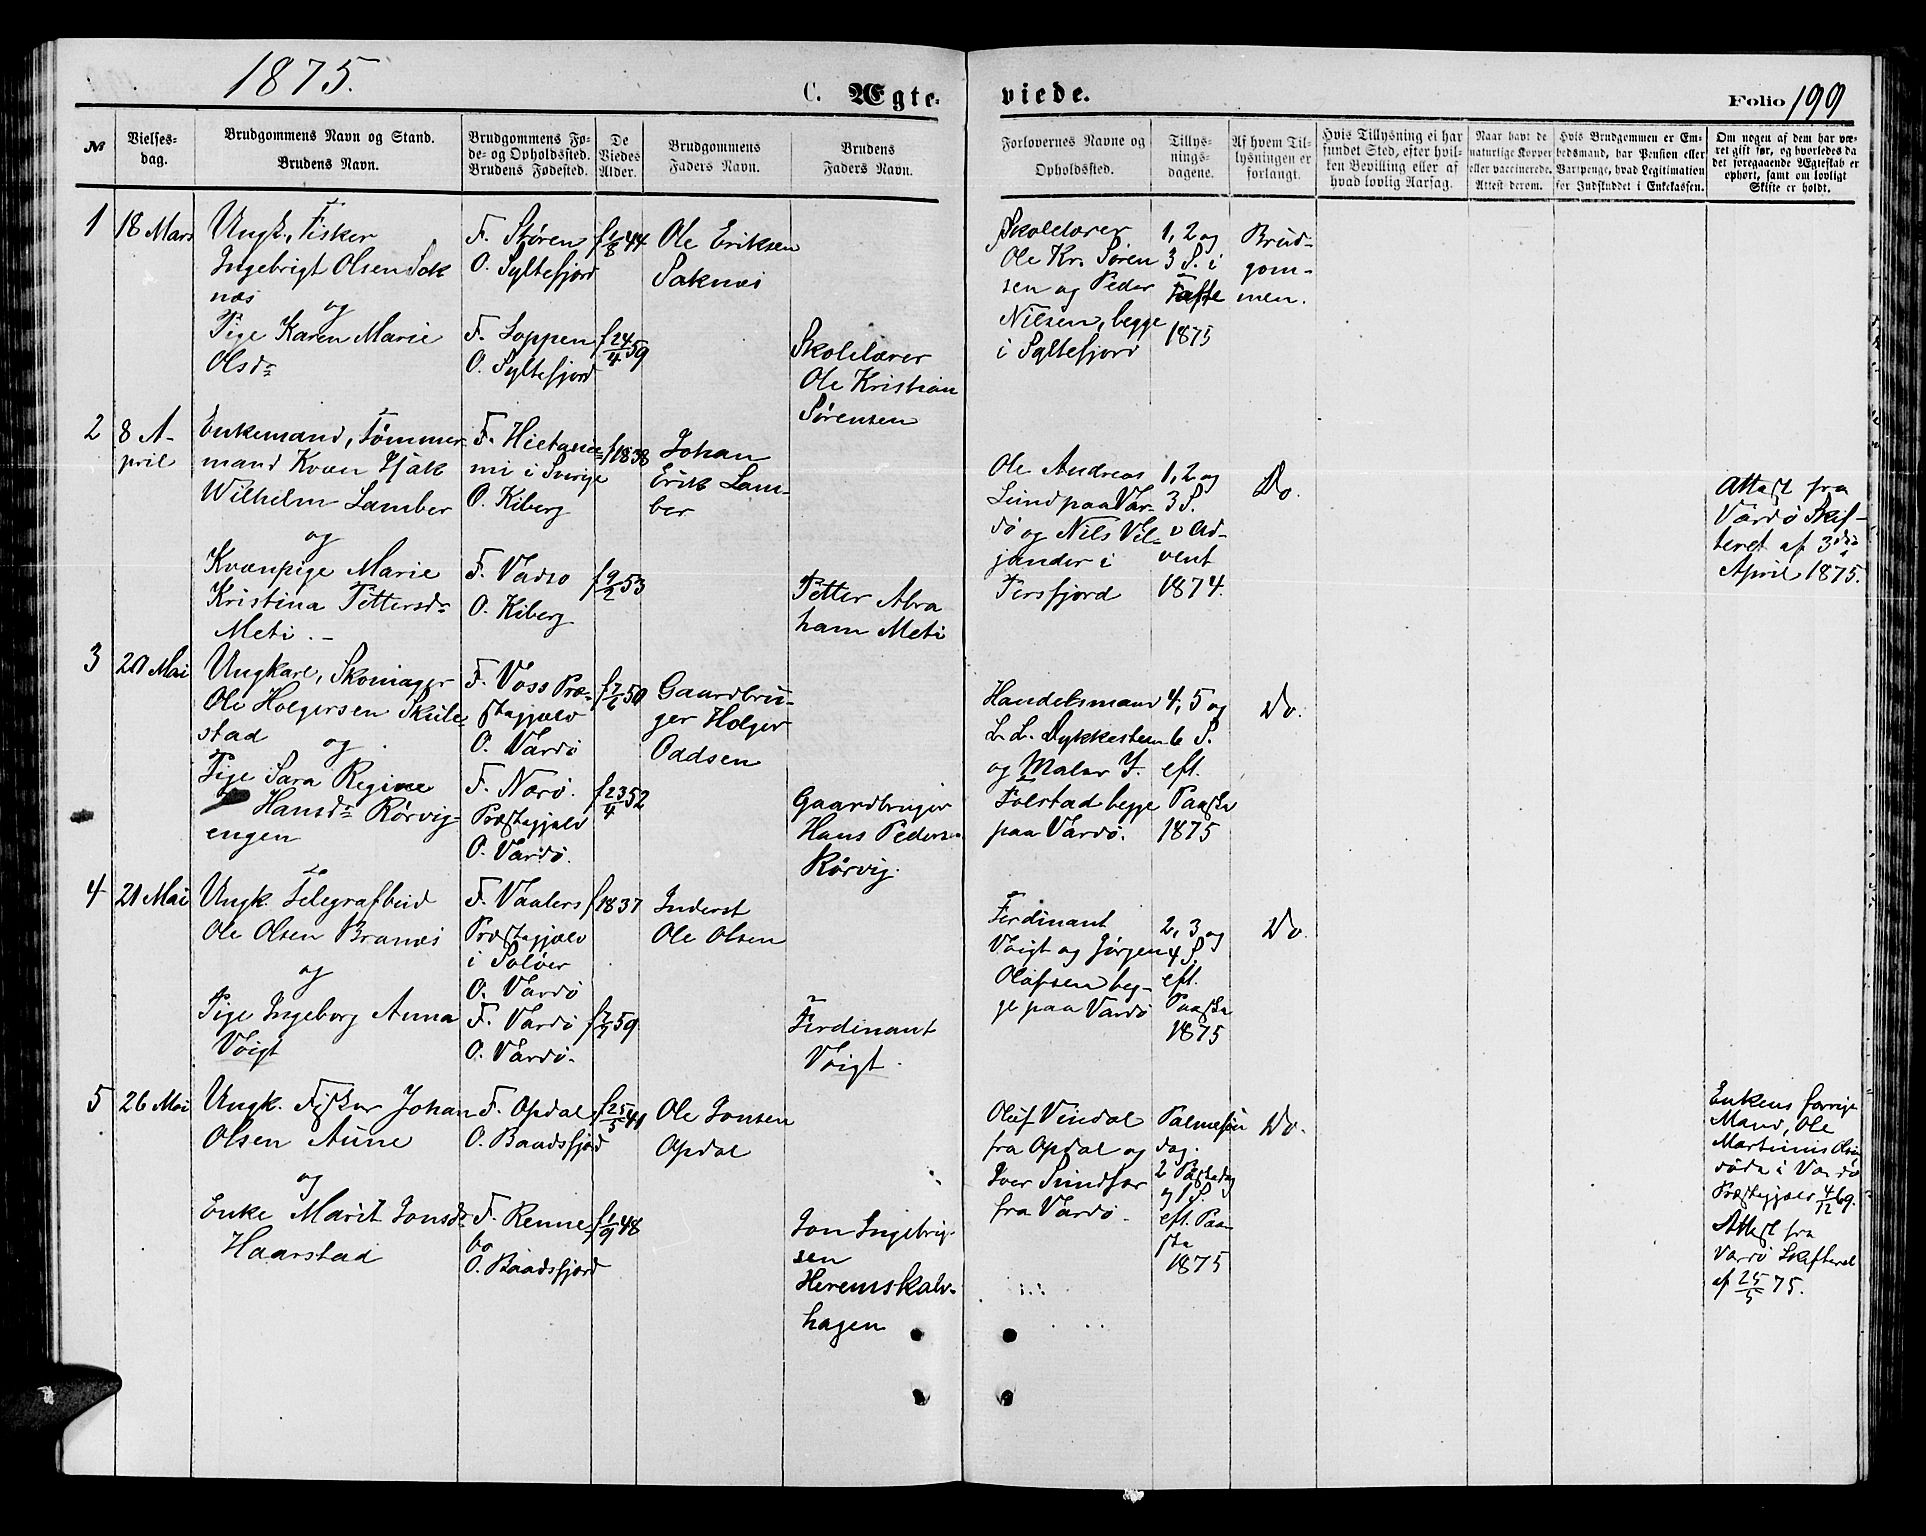 1875.
C. Ægte-
viede.
Folio 199
№
Vielses-
dag.
Brudgommens Navn og Stand.
Brudens Navn.
Brudgommens Fø-
de- og Opholdssted.
Brudens Fødested.
De
Viedes
Alder.
Brudgommens
Faders Navn.
Brudens
Faders Navn.
Forlovernes Navne og
Opholdssted.
Tillys-
nings-
dagene.
Af hvem Til-
lysningen er
forlangt.
Hvis Tillysning ei har
fundet Sted, efter hvil-
ken Bevilling eller af
hvad lovlig Aarsag.
Naar havt de
naturlige Kopper
eller vaccinerede.
Attest derom.
Hvis Brudgommen er Em-
bedsmand, har Pension eller
Vartpenge, hvad Legitimation
for Indskuddet i Enkekassen.
Om nogen af dem har væ-
ret gift før, og hvorledes da
det foregaaende Ægteskab er
ophørt, samt om lovligt
Skifte er holdt.
1
18 Mars
Ungk., Fisker
Ingebrigt Olsen Sok
næs
og
Pige Karen Marie
Olsdr
F. Støren
O. Syltefjord
F. Loppen
O. Syltefjord
f 1/8 44
f 24/4 59
Ole Eriksen
Soknæs
Skolelærer
Ole Kristian
Sørensen
Skolelærer
Ole Kr. Søren
sen og Peder
Nilsen, begge
i Syltefjord
1, 2 og
3 S. i
Faste
1875
Brud-
gom-
men.
2
8 A-
pril
Enkemand, Tømmer
mand Kvæn Isak
Wilhelm Lamber
og
Kvænpige Marie
Kristina Pettersdr
Meti. -
F. Hietanie-
mi i Sverige
O. Kiberg
F. Vadsø
O. Kiberg
f 1838
f 9/2 53
Johan
Erik Lam-
ber
Petter Abra
ham Meti
Ole Andreas
Lund paa Var-
dø og Nils Vil-
jander i
Persfjord
1, 2 og
3 S.
i Ad-
vent
1874.
Do.
Attest fra
Vardø Skif-
teret af 3die
April 1875.
3
20 Mai
Ungkarl, Skomager
Ole Holgersen Skule-
stad og
Pige Sara Regine
Hansdr Rørvig-
engen
F. Voss Præ-
stegjæld
O. Vardø
F. Nærø.
Præstegjæld
O. Vardø.
f 7/6 50
f 23/4 52
Gaardbru-
ger Holger
Oddsen
Gaardbruger
Hans Peders-
Rørvig.
Handelsmand
L. L. Dykkesteen
og Maler J.
Folstad begge
paa Vardø.
4, 5 og
6 S.
eft.
Paaske
1875
Do.
4
21 Mai
Ungk. Telegrafbud
Ole Olsen Branæs
og
Pige Ingeborg Anna
Voigt
F. Vaalers
Præstegjæld
i Soløer
O. Vardø
F. Vardø
O. Vardø.
f 1837
f 7/7 59
Inderst
Ole Olsen
Ferdinant
Voigt.
Ferdinant
Voigt og Jørgen
Olafsen beg-
ge paa Vardø
2, 3 og
4 S.
eft.
Paaske
1875
Do.
5
26 Mai
Ungk. Fisker Johan
Olsen Aune
og
Enke Marit Jonsdr
Haarstad
F. Opdal
O. Baadsfjord
F. Renne-
bo
O. Baadsfjord
f 25/5 41
f 1/9 48
Ole Jonsen
Opdal
Jon Ingebrig-
sen
Heremskalv-
hagen
Oluf Vindal
fra Opdal og
Iver Sundfær
fra Vardø.
Palmesøn
dag.
2 Paaskedag
og 1 S.
eft. Paa-
ske
1875
Do.
Enkens forrige
Mand, Ole
Martinus Olsen
døde i Vardø
Præstegjæld 4/12 69.
Attest fra
Vardø Skifteret
af 25/5 75.